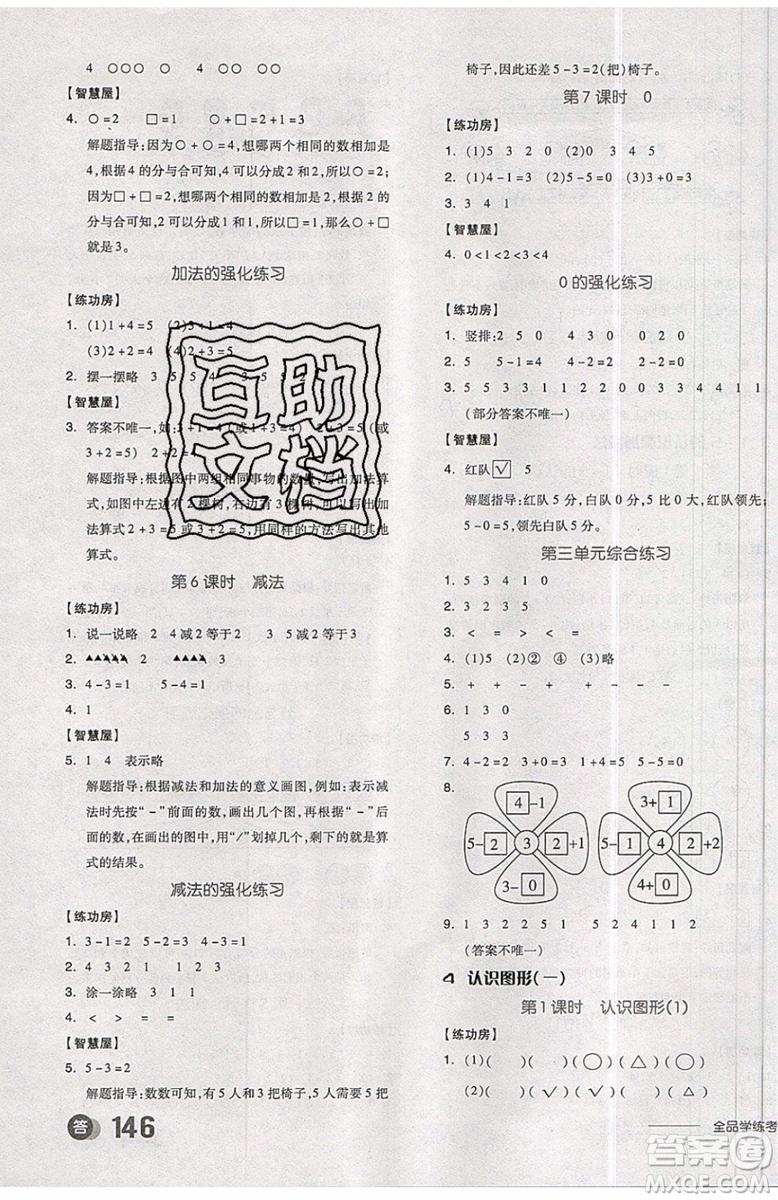 4 ○○○ ○ 4 ○○ ○○
【智慧屋】
4. ○=2 □=1 ○+□=2+1=3
解题指导:因为○+○=4,想哪两个相同的数相加是
4,根据 4 的分与合可知,4 可以分成 2 和 2,所以○=2;
因为□+□=2,想哪两个相同的数相加是 2,根据 2
的分与合可知,2 可以分成 1 和 1,所以□=1,那么○+□
就是 3。
加法的强化练习
【练功房】
1. (1)1+4=5 (2)3+1=4
(3)2+2=4 (4)2+3=5
2. 摆一摆略 3 5 5
【智慧屋】
3. 答案不唯一,如:
2+3=5 2+2=4
解题指导:根据图中两组相同事物的数量,写出加法算
式,如图中左边有 2 棵树,右边有 3 棵树,可以写出加
法算式 2+3=5 或 3+2=5,用同样的方法写出其他
算式。
第 6 课时 减法
【练功房】
1. 说一说略 2 4 减 2 等于 2 3 5 减 2 等于 3
2. 2 3
3. 4-3=1 5-4=1
4. 1
【智慧屋】
5. 1 4 表示略
解题指导:根据减法和加法的意义画图,例如:表示减
法时先按“-”前面的数,画出几个图,再根据“-”后
面的数,在画出的图中,用“/”划掉几个,剩下的就是算
式的结果。
减法的强化练习
【练功房】
1. 3-1=2 5-2=3 4-3=1
2. 4 3 2 1 1 2 3
3. 涂一涂略 3 1 1
4. < > = =
【智慧屋】
5. 5-3=2
解题指导:数数可知,有 5 人和 3 把椅子,5 人需要 5 把
答 146
椅子,因此还差 5-3=2(把)椅子。
第 7 课时 0
【练功房】
1. (1)5 3 2 0 (2)0 3 4 5
2. (1)4-4=0 (2)3+0=3
3. 3 4 1
【智慧屋】
4. 0<1<2<3<4
0 的强化练习
【练功房】
1. 竖排:2 5 0 4 3 0 0 2 0
2. 5 5-1=4 4-2=2 2-2=0
3. 5 5 1 3 1 1 2 2 0 0 3 3 4 4 1 1
(部分答案不唯一)
【智慧屋】
4. 红队☑ 5
解题指导:红队 5 分,白队 0 分,5 比 0 大,红队领先;
5-0=5,领先白队 5 分。
第三单元综合练习
1. 5 3 4 1 0
2. 3 2 3 5
3. < = > < =
4. (1)5 (2)② ④ (3)略
5. + + - + - - - -
6. 1 3 0
5 3 3
7. 4-2=2 3+0=3 1+4=5 5-5=0
8. 4-1 3+1
5-2 3 2+1 5-1 4 2+2
3-0 4+0
9. 1 3 2 2 5 1 5 2 4 1 1 2
(答案不唯一)
4 认识图形(一)
第 1 课时 认识图形(1)
【练功房】
1. (1)( )( )(○)(△)(□)(△)
(2)( )(√)(√)( )(√)( )
全品学练考
互助
文档
答案圈
MXQE.COM